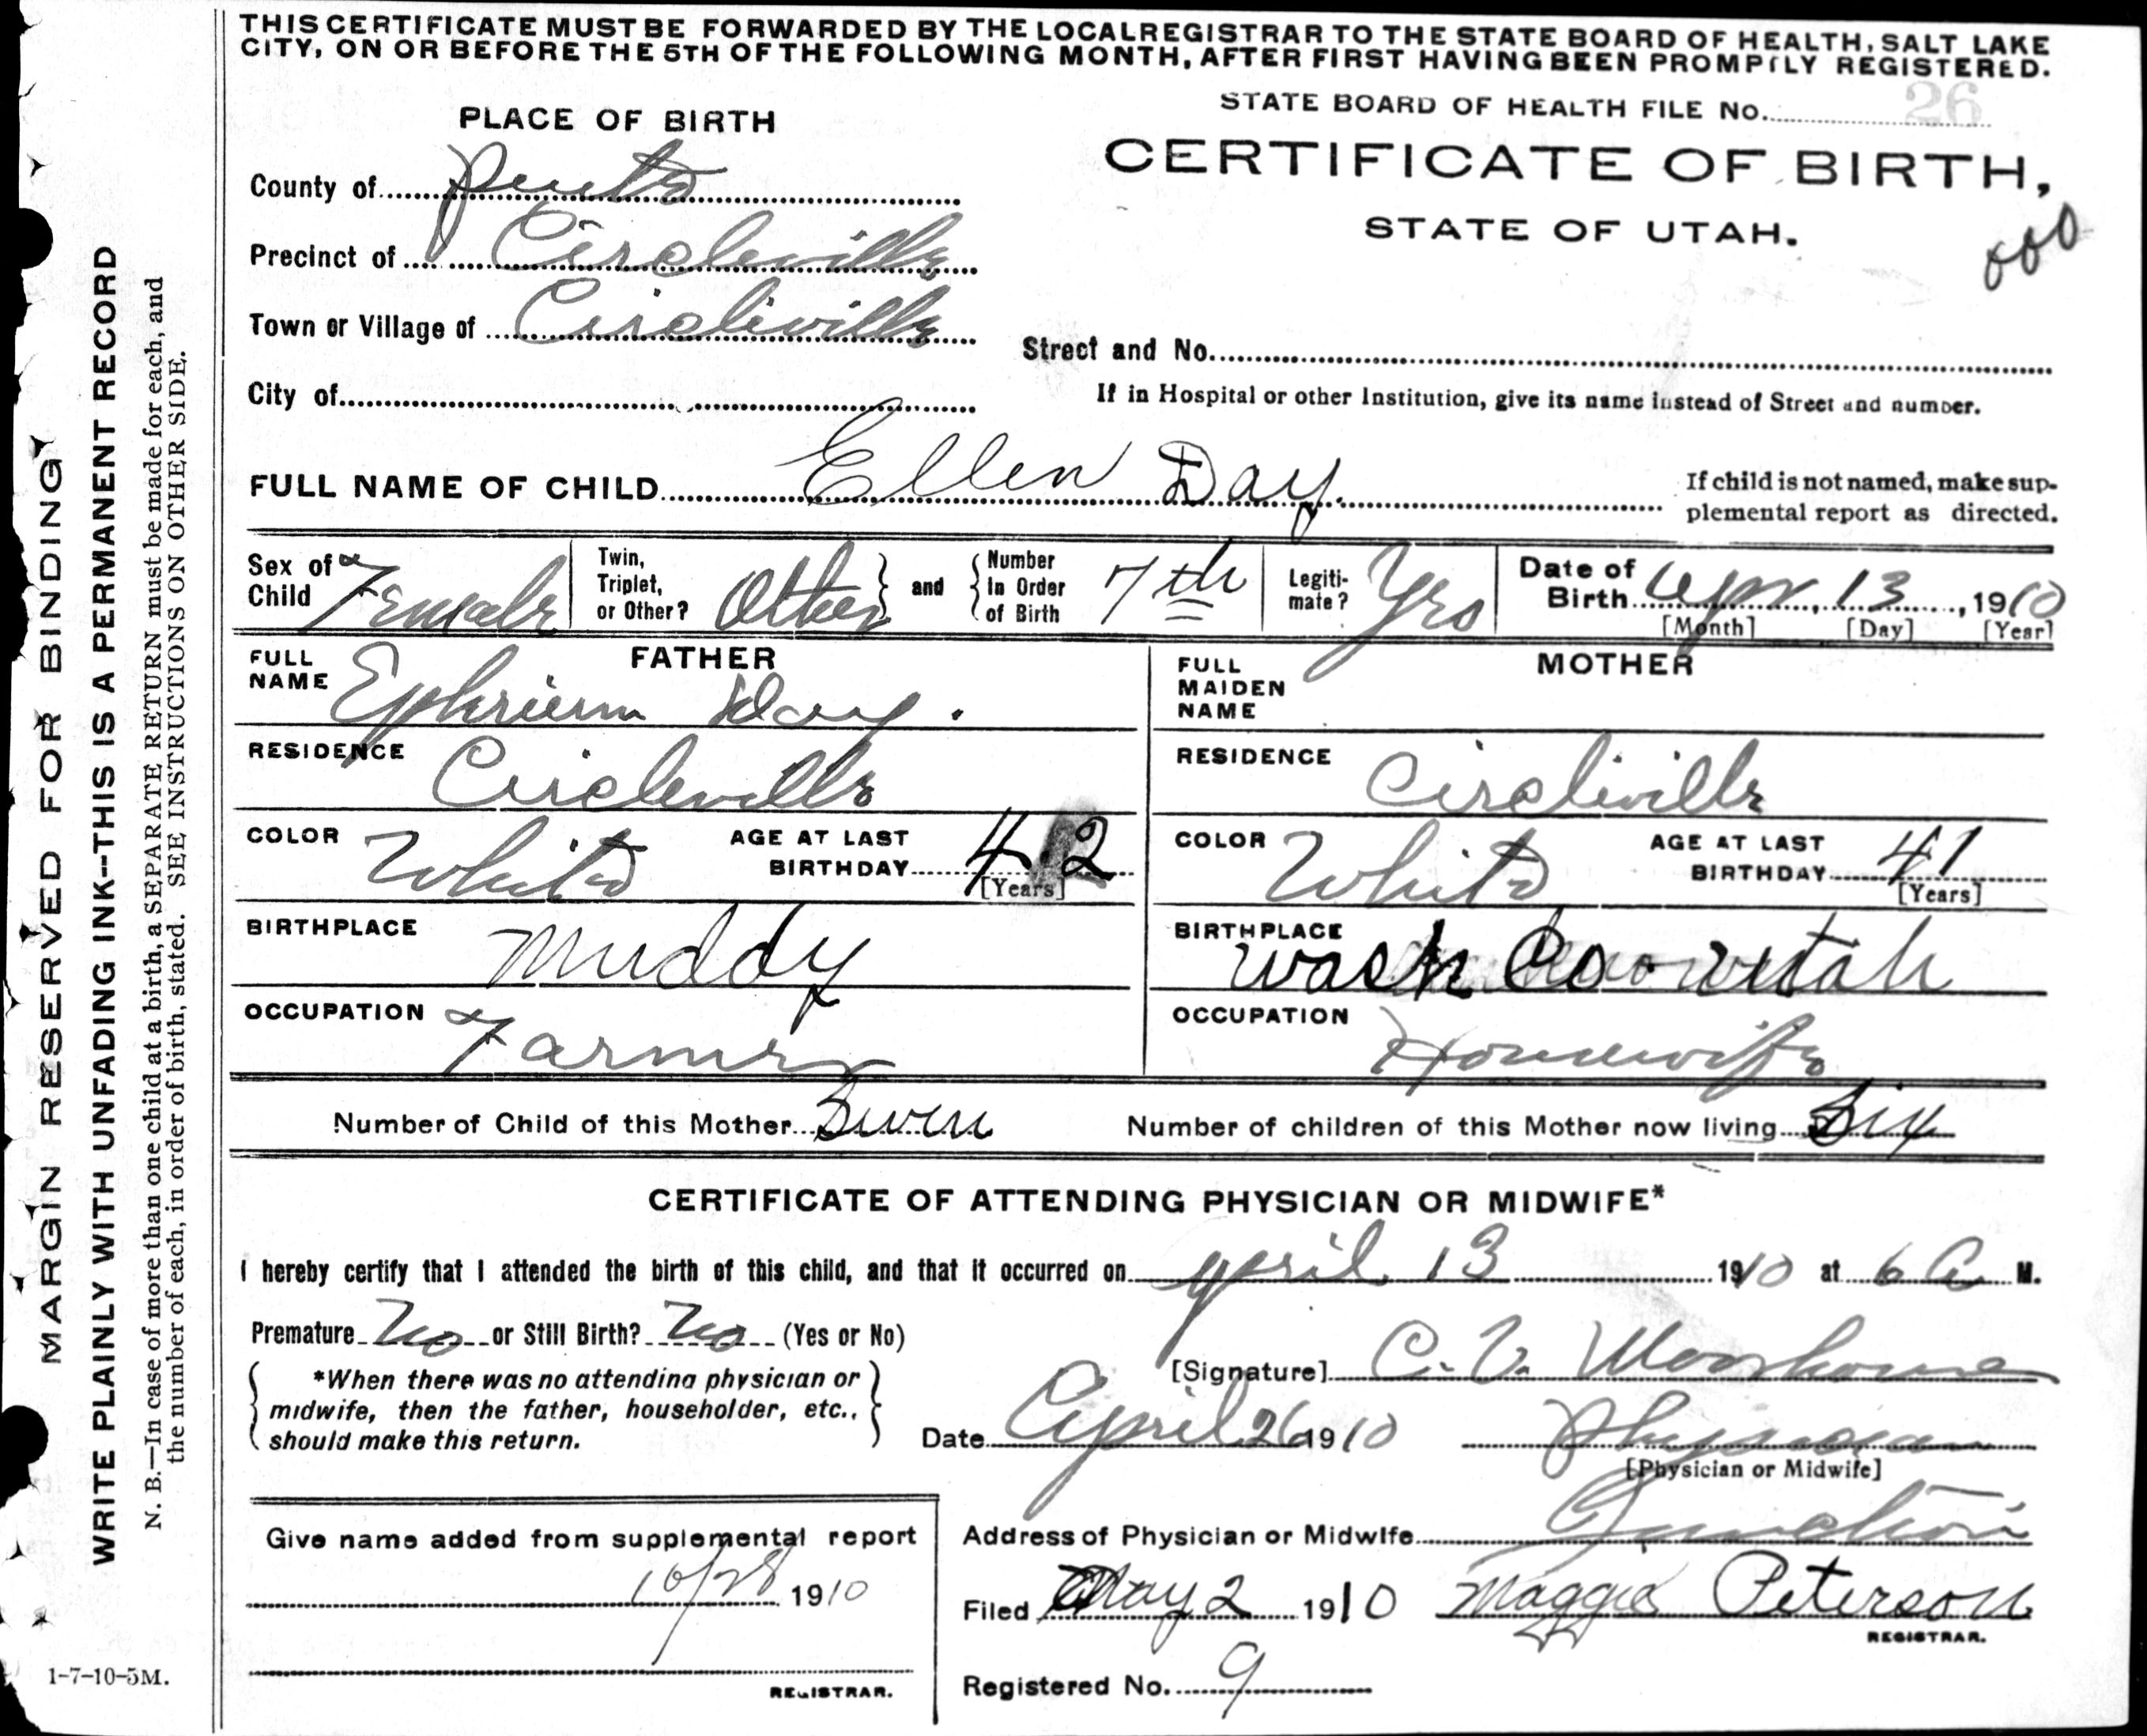 THIS CERTIFICATE MUST BE FORWARDED BY THE LOCAL REGISTRAR TO THE STATE BOARD OF HEALTH, SALT LAKE
CITY, ON OR BEFORE THE 5TH OF THE FOLLOWING MONTH, AFTER FIRST HAVING BEEN PROMPTLY REGISTERED.
STATE BOARD OF HEALTH FILE No. 26
PLACE OF BIRTH
CERTIFICATE OF BIRTH,
STATE OF UTAH.
County of
Precinct of Circleville
Town or Village of Circleville
Street and No.
City of
If in Hospital or other Institution, give its name instead of Street and number.
FULL NAME OF CHILD Ellen Day.
If child is not named, make sup-
plemental report as directed.
Sex of Child Female
Twin, Triplet, or Other? Other
and Number In Order of Birth 7th
Legiti-mate? Yes
Date of Birth Apr, 13, 1910
[Month] [Day] [Year]
FATHER
FULL NAME Ephrium Day.
MOTHER
FULL MAIDEN NAME
RESIDENCE Circleville
RESIDENCE Circleville
COLOR White AGE AT LAST BIRTHDAY 42 [Years]
COLOR White AGE AT LAST BIRTHDAY 41 [Years]
BIRTHPLACE Muddy
BIRTHPLACE Wash Co utah
OCCUPATION Farmer
OCCUPATION Housewife
Number of Child of this Mother Seven Number of children of this Mother now living Six
CERTIFICATE OF ATTENDING PHYSICIAN OR MIDWIFE*
I hereby certify that I attended the birth of this child, and that it occurred on April 13 1910 at 6 A M.
Premature No or Still Birth? No (Yes or No)
*When there was no attending physician or
midwife, then the father, householder, etc.,
should make this return.
[Signature] C. V.
Date April 26 1910 Physician
[Physician or Midwife]
Give name added from supplemental report
10/28 1910
REGISTRAR.
Address of Physician or Midwife Junction
Filed May 2 1910 Maggie Peterson
REGISTRAR.
Registered No. 9
MARGIN RESERVED FOR BINDING
WRITE PLAINLY WITH UNFADING INK--THIS IS A PERMANENT RECORD
N. B.—In case of more than one child at a birth, a SEPARATE RETURN must be made for each, and
the number of each, in order of birth, stated. SEE INSTRUCTIONS ON OTHER SIDE.
1-7-10-5M.